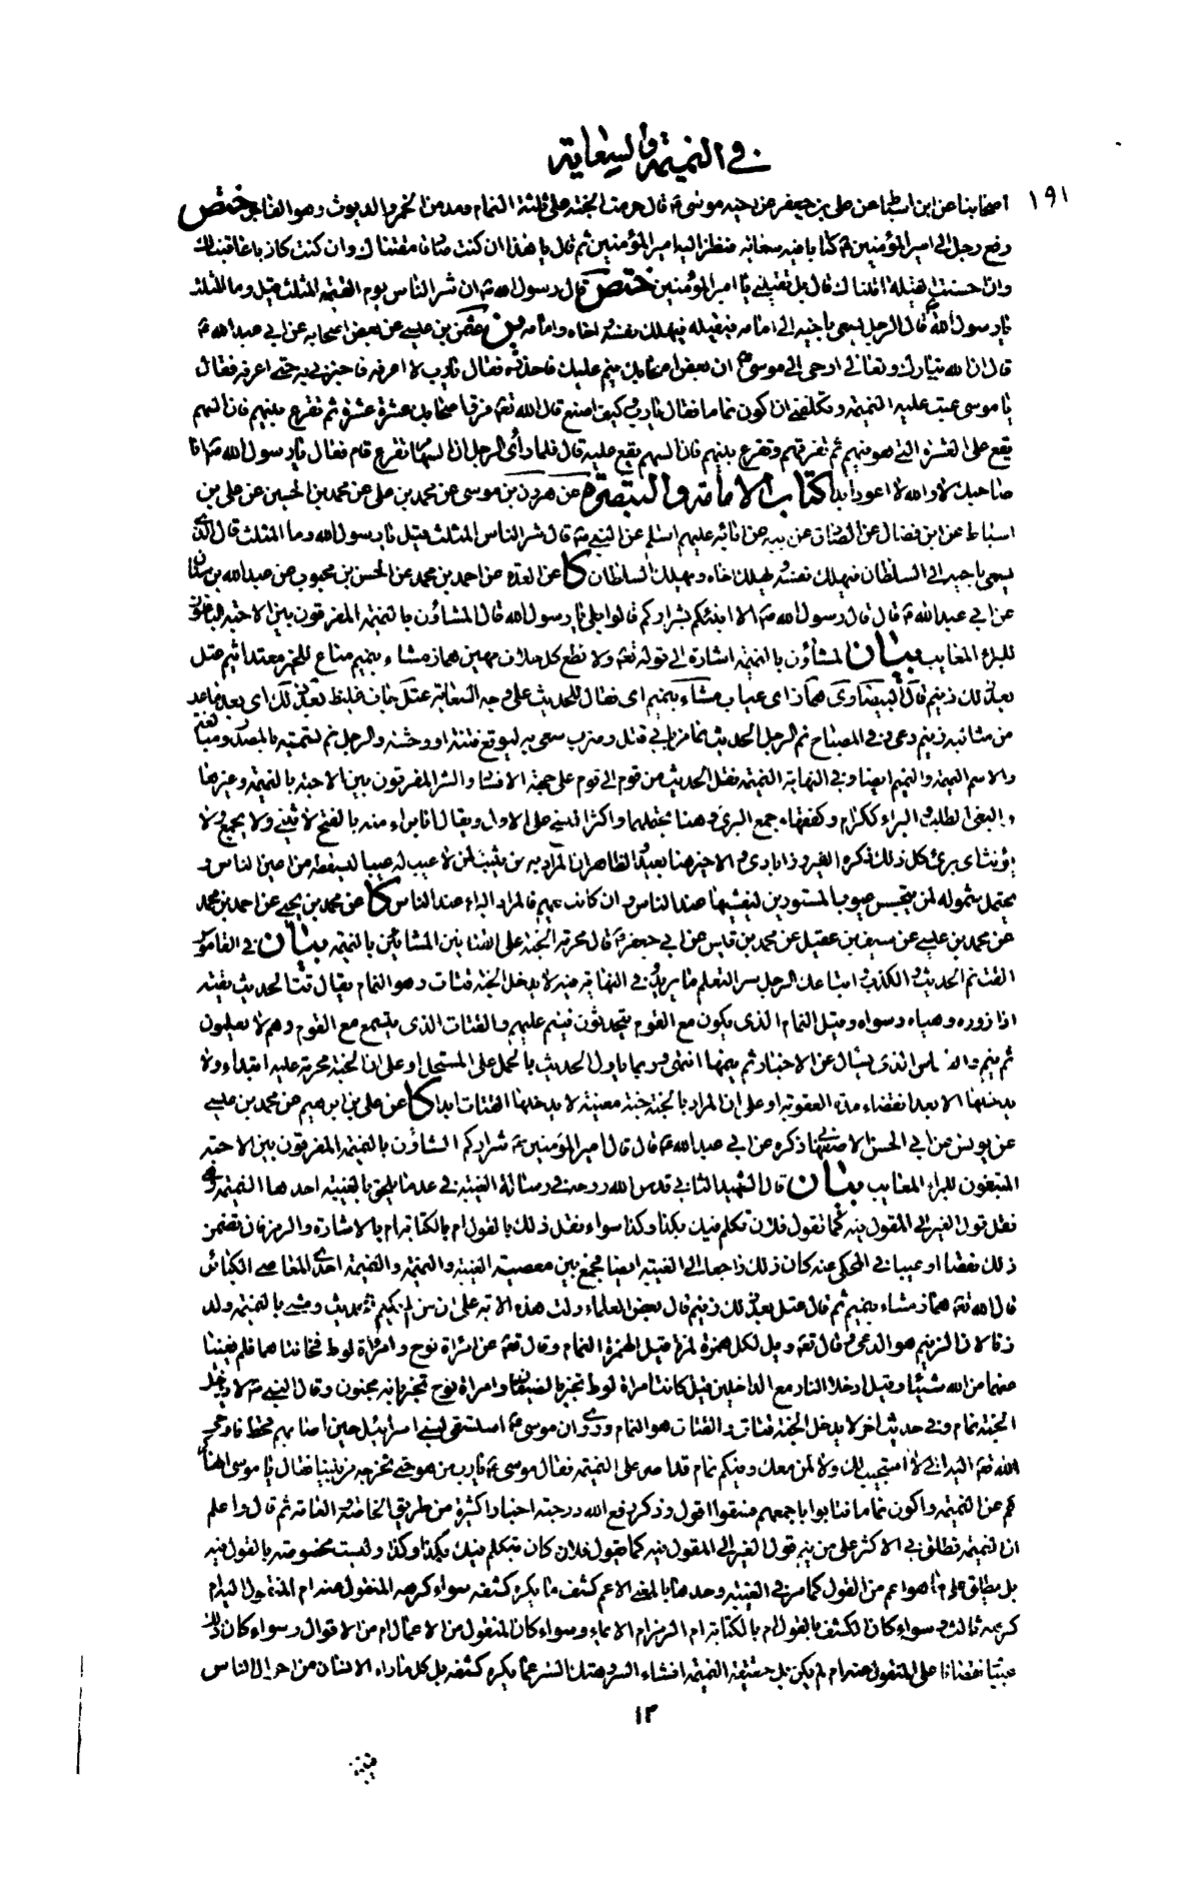 في النميمة والسعاية
١٩١
أصحابنا عن ابن أسباط عن علي بن جعفر عن أخيه موسى ع قال حرمت الجنة على ثلثة النمام ومدمن الخمر والديوث وهو الفاجر ختص
رفع رجل الى امير المؤمنين ع كتابا فيه سعاية فنظر اليه امير المؤمنين ثم قال يا هذا ان كنت صادقا مقتناك وان كنت كاذبا عاقبناك
وان احببت القيلة اقلناك قال بل تقيلني يا امير المؤمنين ختص قال رسول الله ص ان شر الناس يوم القيمة المثلث قيل وما المثلث
يا رسول الله قال الرجل يسعى باخيه الى امامه فيقتله فيهلك نفسه واخاه وامامه ين عثمن بن عيسى عن بعض اصحابه عن ابي عبد الله ع
قال ان الله تبارك وتعالى اوحى الى موسى ع ان بعض اصحابك ينم عليك فاحذره فقال يا رب لا اعرفه فاخبرني به حتى اعرفه فقال
يا موسى عبت عليه النميمة وتكلفني ان اكون نماما فقال يا رب وكيف اصنع قال الله تعه فرق اصحابك عشرة عشرة ثم تقرع بينهم فان السهم
يقع على العشرة التي هو فيهم ثم تفرقهم وتقرع بينهم فان السهم يقع عليه قال فلما رأى الرجل ان السهام تقرع قام فقال يا رسول الله انا
صاحبك لا والله لا اعود ابدا كتاب الامامة والتبصرة عن هرون بن موسى عن محمد بن علي عن محمد بن الحسين عن علي بن
اسباط عن ابن فضال عن الصادق عن ابيه عن آبائه عليهم السلم عن النبي ص قال شر الناس المثلث قيل يا رسول الله وما المثلث قال الذي
يسعى باخيه الى السلطان فيهلك نفسه ويهلك اخاه ويهلك السلطان كا عن العدة عن احمد بن محمد عن الحسن بن محبوب عن عبد الله بن سنان
عن ابي عبد الله ع قال قال رسول الله ص الا انبئكم بشراركم قالوا بلى يا رسول الله قال المشاؤن بالنميمة المفرقون بين الاحبة الباغون
للبراء المعايب بيان المشاؤن بالنميمة اشارة الى قوله تعه ولا تطع كل حلاف مهين هماز مشاء بنميم مناع للخير معتد اثيم عتل
بعد ذلك زنيم قال البيضاوي هماز اي عياب مشاء بنميم اي نقال للحديث على وجه السعاية عتل جاف غليظ بعد ذلك اي بعد ما عد
من مثالبه زنيم دعي وفي المصباح نم الرجل الحديث نما من بابي قتل وضرب سعى به ليوقع فتنة او وحشة والرجل نم تسمية بالمصدر ومبالغة
والاسم النميمة والنميم ايضا وفي النهاية النميمة نقل الحديث من قوم الى قوم على جهة الافساد والشر المفرقون بين الاحبة بالنميمة وغيرها
والبغي الطلب والبراء ككرام وكفقهاء جمع البرئ وهنا يحتملهما واكثر النسخ على الاول ويقال انا براء منه بالفتح لا يثنى ولا يجمع ولا
يؤنث اي برئ كل ذلك ذكره الفيروزابادي والاخير هنا بعيد والظاهر ان المراد به من يثبت لمن لا عيب له عيبا ليسقطه من اعين الناس و
يحتمل شموله لمن يتجسس عيوب المستورين ليفشيها عند الناس وان كانت فيهم فالمراد البراء عند الناس كا عن محمد بن يحيى عن احمد بن محمد
عن محمد بن عيسى عن سيف بن عقيل عن محمد بن قيس عن ابي جعفر ع قال محرمة الجنة على القتاتين المشائين بالنميمة بيان في القاموس
القت نم الحديث والكذب واتباعك الرجل سرا لتعلم ما يريد وفي النهاية فيه لا يدخل الجنة قتات وهو النمام يقال قت الحديث يقته
اذا زوره وهياه وسواه وقيل النمام الذي يكون مع القوم يتحدثون فينم عليهم والقتات الذي يتسمع مع القوم وهم لا يعلمون
ثم ينم والقساس الذي يسأل عن الاخبار ثم ينمها انتهى وربما يأول الحديث بالحمل على المستحل او على ان الجنة محرمة عليه ابتداء ولا
يدخلها الا بعد انقضاء مدة العقوبة او على ان المراد بالجنة جنة معينة لا يدخلها القتات ابدا كا عن علي بن ابرهيم عن محمد بن عيسى
عن يونس عن ابي الحسن الاصفهاني ذكره عن ابي عبد الله ع قال قال امير المؤمنين ع شراركم المشاؤن بالنميمة المفرقون بين الاحبة
المبتغون للبراء المعايب بيان قال الشهيد الثاني قدس الله روحه في رسالة الغيبة في عد ما يلحق بالغيبة احدها النميمة وهي
نقل قول الغير الى المقول فيه كما تقول فلان تكلم فيك بكذا وكذا سواء نقل ذلك بالقول ام بالكتابة ام بالاشارة والرمز فان تضمن
ذلك نقصا او عيبا في المحكي عنه كان ذلك راجعا الى الغيبة ايضا فجمع بين معصية الغيبة والنميمة والنميمة احدى المعاصي الكبائر
قال الله تعه هماز مشاء بنميم ثم قال عتل بعد ذلك زنيم قال بعض العلماء دلت هذه الاية على ان من لم يكتم الحديث ومشى بالنميمة ولد
زنا لان الزنيم هو الدعي وقال تعه ويل لكل همزة لمزة قيل الهمزة النمام وقال تعه عن امرأة نوح وامرأة لوط فخانتاهما فلم يغنيا
عنهما من الله شيئا وقيل ادخلا النار مع الداخلين قيل كانت امرأة لوط تخبر بالضيفان وامرأة نوح تخبر بانه مجنون وقال النبي ص لا يدخل
الجنة نمام وفي حديث اخر لا يدخل الجنة قتات والقتات هو النمام وروى ان موسى ع استسقى لبني اسرائيل حين اصابهم قحط فاوحى
الله تعه اليه اني لا استجيب لك ولا لمن معك وفيكم نمام قد اصر على النميمة فقال موسى ع يا رب من هو حتى نخرجه من بيننا فقال يا موسى انهاكم
كم عن النميمة واكون نماما فتابوا باجمعهم فسقوا اقول وذكر رفع الله درجته اخبارا كثيرة من طريق الخاصة والعامة ثم قال واعلم
ان النميمة تطلق في الاكثر على من ينم قول الغير الى المقول فيه كما يقول فلان كان يتكلم فيك بكذا وكذا وليست مخصوصة بالقول فيه
بل يطلق على ما هو اعم من القول كما مر في الغيبة وحدها بالمعنى الاعم كشف ما يكره كشفه سواء كرهه المنقول عنه ام المنقول اليه ام
كرهه ثالث وسواء كان الكشف بالقول ام بالكتابة ام الرمز ام الايماء وسواء كان المنقول من الاعمال ام من الاقوال وسواء كان ذلك
عيبا ونقصانا على المنقول عنه ام لم يكن بل حقيقة النميمة افشاء السر وهتك الستر عما يكره كشفه بل كل ما رآه الانسان من احوال الناس
١٣